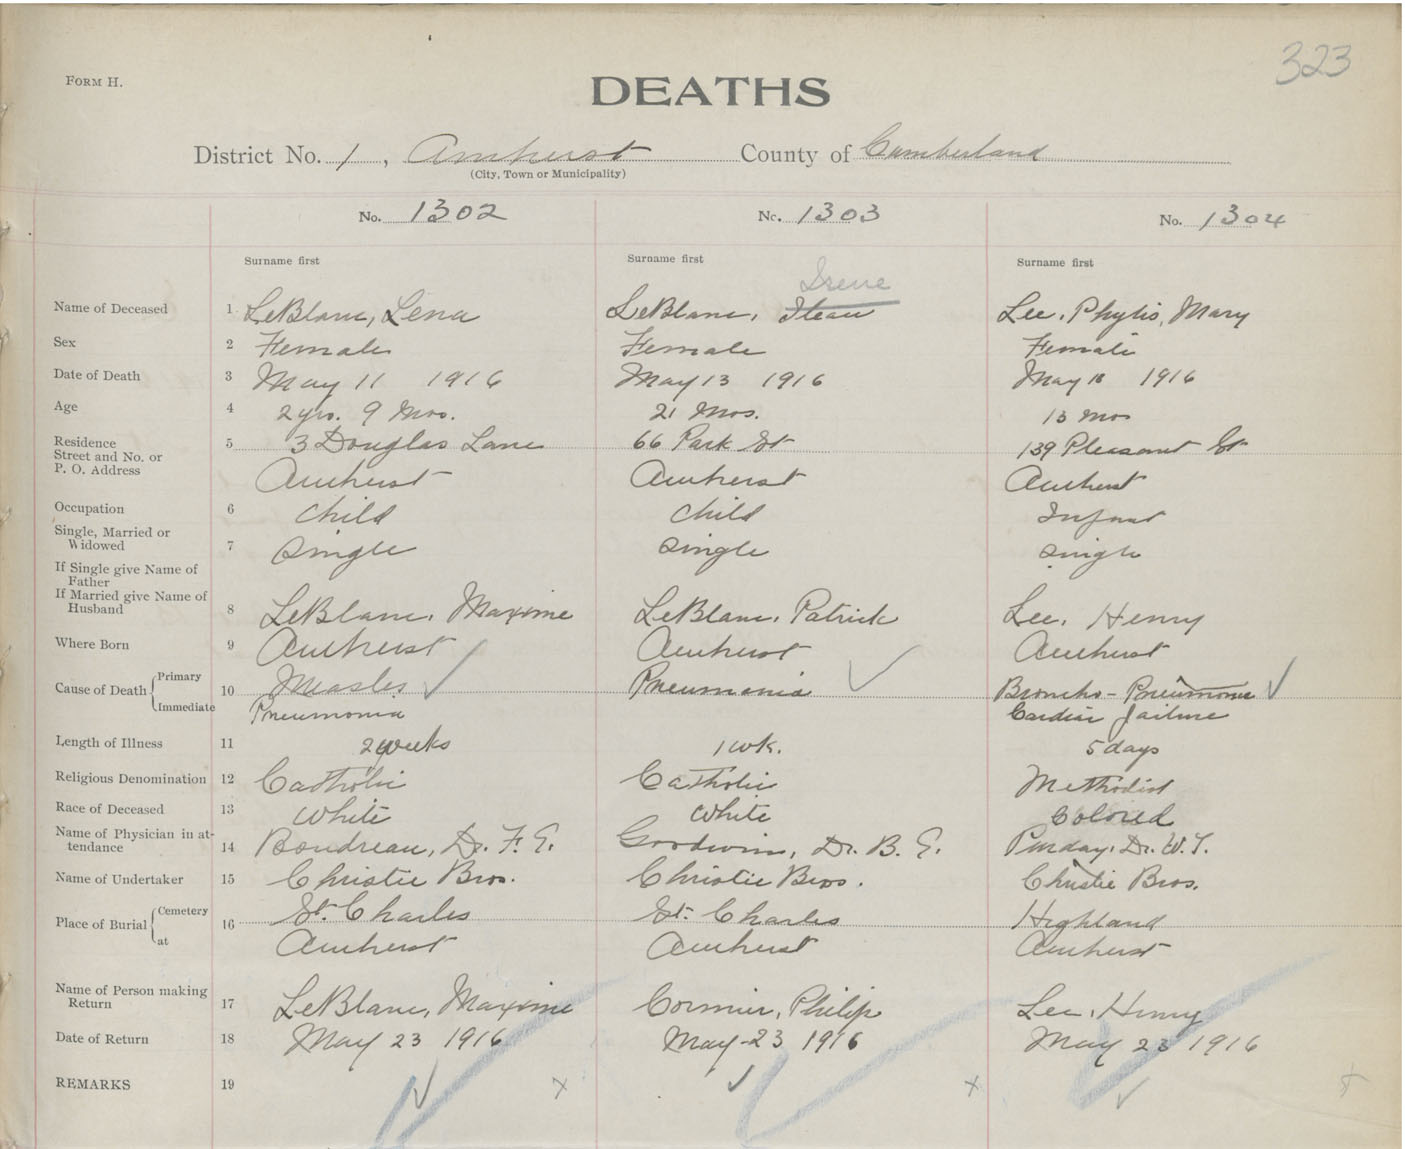 323
FORM H.
DEATHS
District No. 1, Amherst County of Cumberland
(City, Town or Municipality)
No. 1302 No. 1303 No. 1304
Surname first Surname first Surname first
Irene
Name of Deceased 1 LeBlanc, Lena LeBlanc, Lee, Phylis, Mary
Sex 2 Female Female Female
Date of Death 3 May 11 1916 May 13 1916 May 18 1916
Age 4 2 yrs. 9 Mos. 21 Mos. 13 mos
Residence 5 3 Douglas Lane 66 Park St 139 Pleasant St
Street and No. or
P. O. Address Amherst Amherst Amherst
Occupation 6 Child Child Infant
Single, Married or
Widowed 7 Single Single Single
If Single give Name of
Father
If Married give Name of
Husband 8 LeBlanc, Maxime LeBlanc, Patrick Lee, Henry
Where Born 9 Amherst Amherst Amherst
Cause of Death Primary 10 Measles Pneumonia Broncho-Pneumonia
Immediate Pneumonia Cardiac failure
Length of Illness 11 2 weeks 1 wk. 5 days
Religious Denomination 12 Catholic Catholic Methodist
Race of Deceased 13 White White Colored
Name of Physician in at-
tendance 14 Boudreau, Dr. F. E. Goodwin, Dr. B. E. Purday, Dr. W. T.
Name of Undertaker 15 Christie Bros. Christie Bros. Christie Bros.
Place of Burial Cemetery 16 St. Charles St. Charles Highland
at Amherst Amherst Amherst
Name of Person making
Return 17 LeBlanc, Maxime Cormier, Philip Lee, Henry
Date of Return 18 May 23 1916 May-23 1916 May 23 1916
REMARKS 19